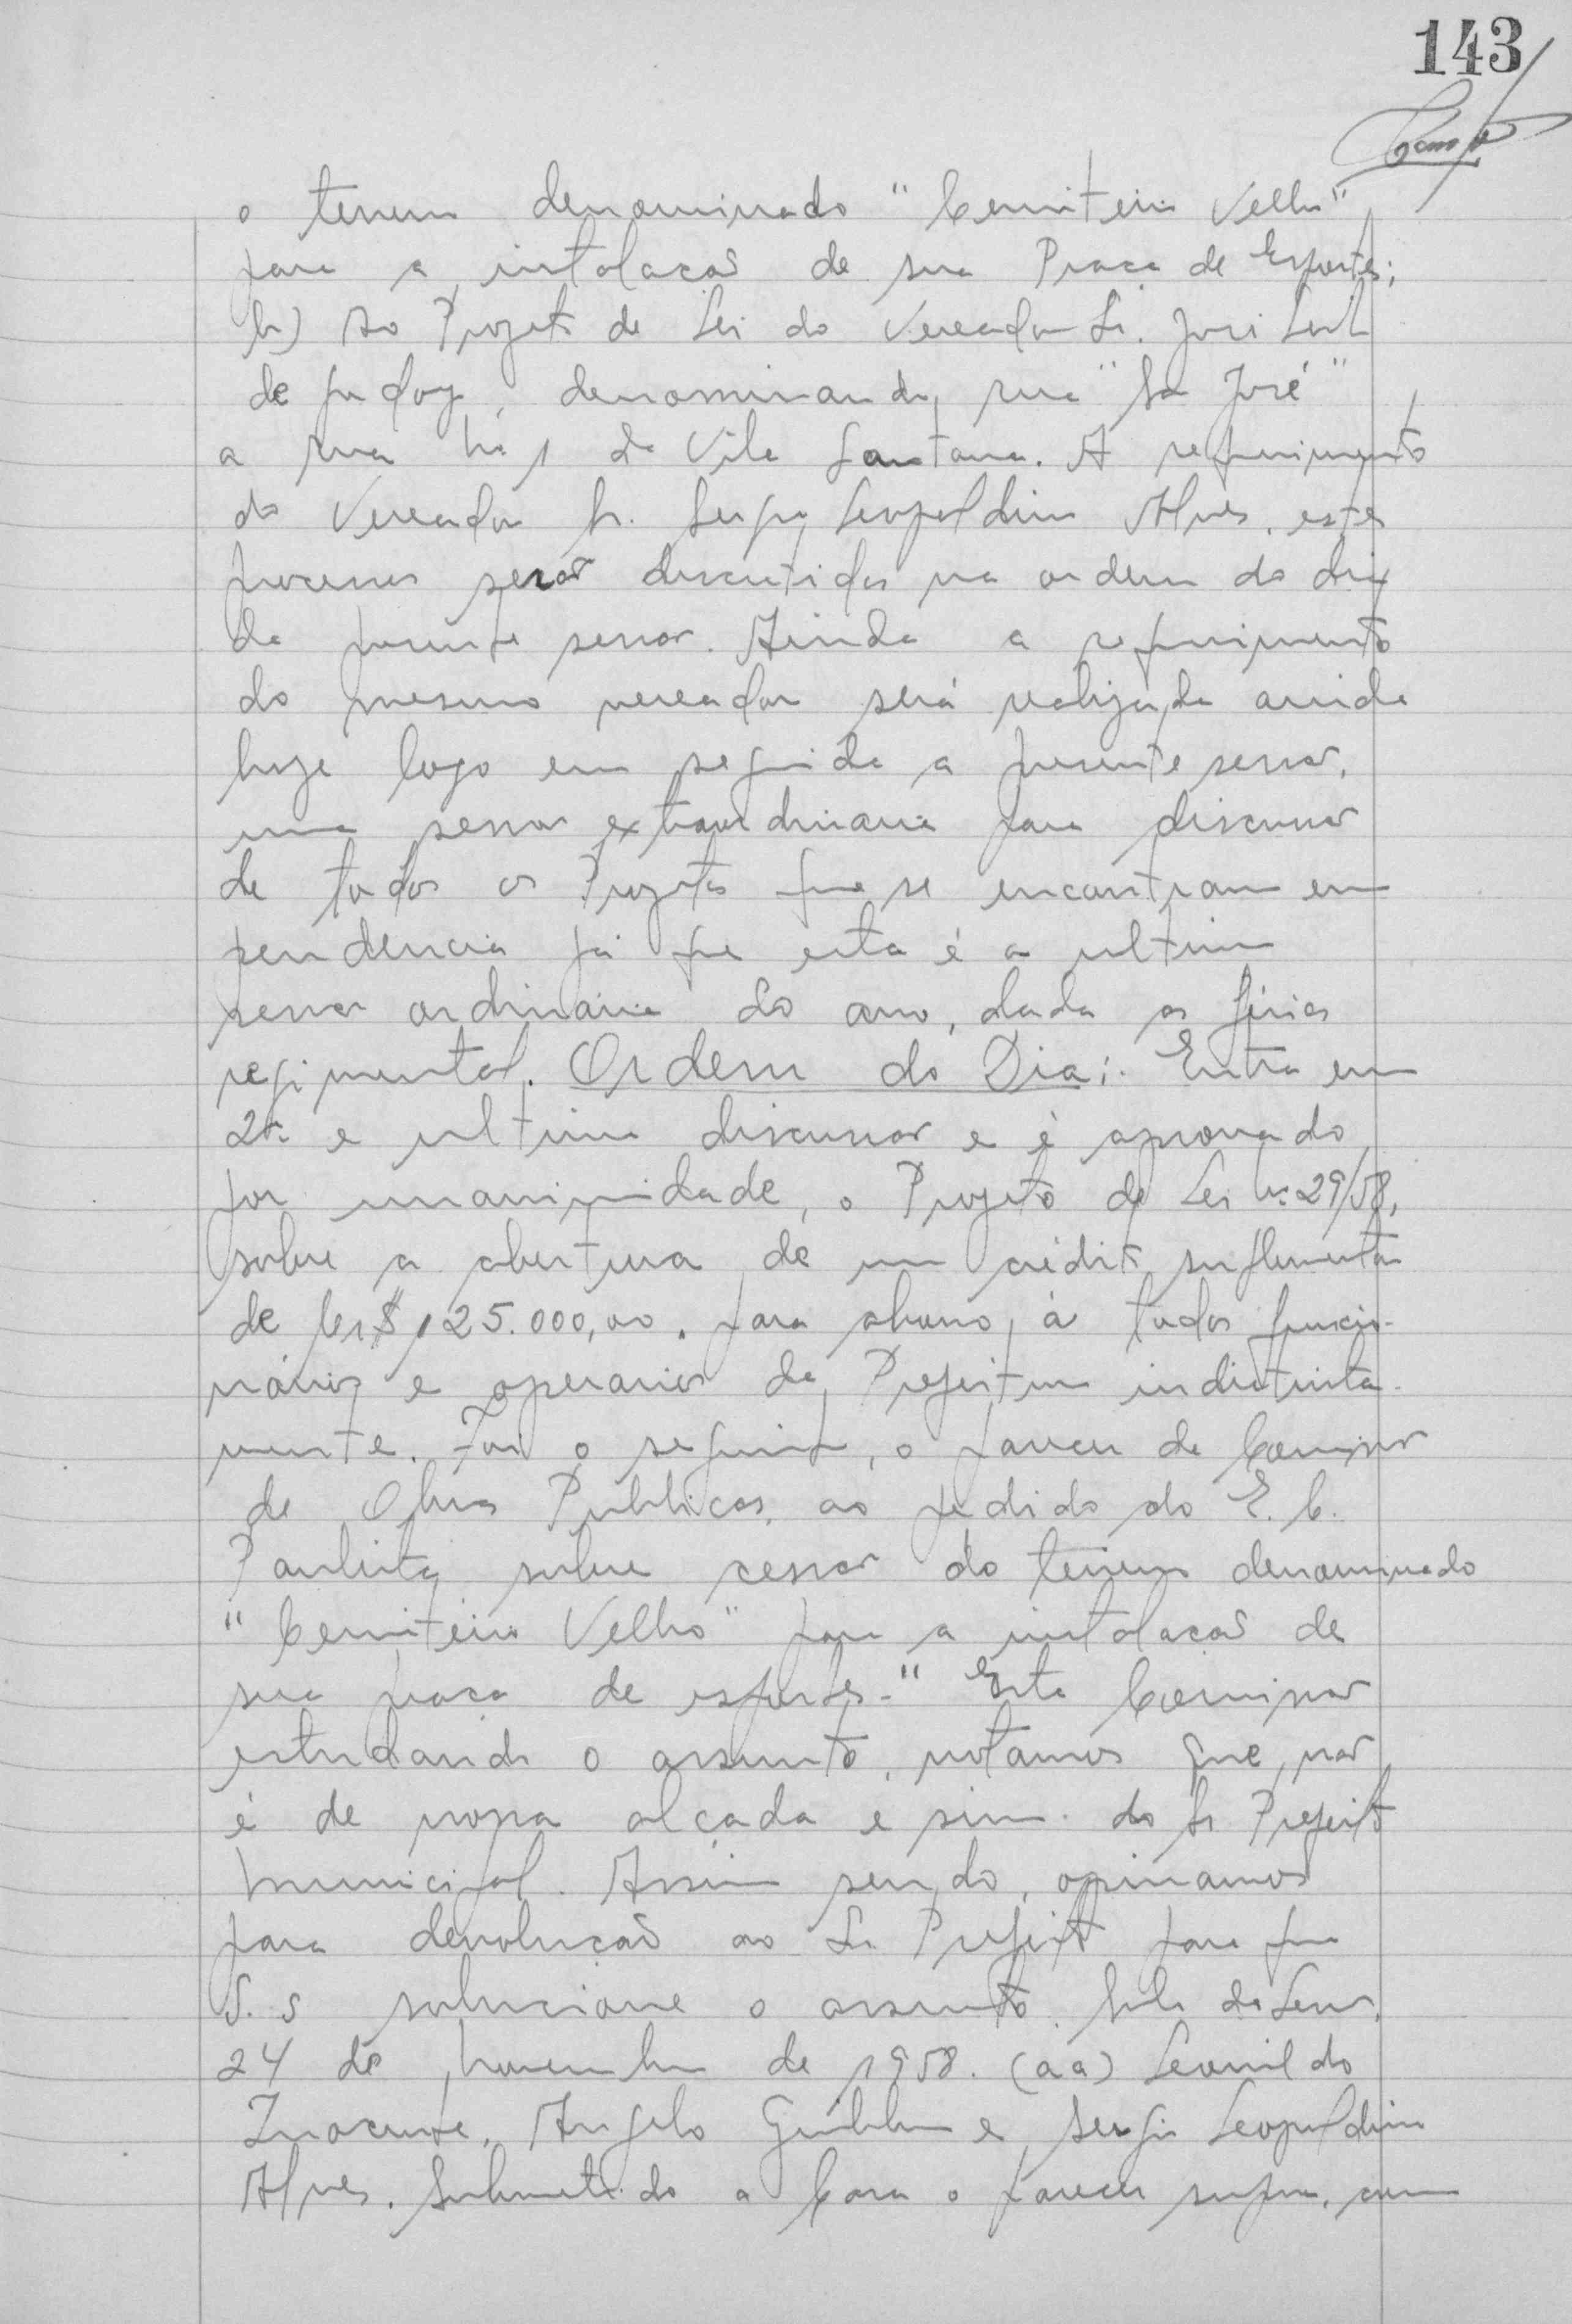 143
o terreno denominado "Cemiterio Velho"
para a instalação de sua Praça de Esportes;
b) Ao Projeto de Lei do Vereador Sr. José Leal
de Godoy, denominando, rua "São José"
a rua nº 1 da Vila Santana. A requerimento
do Vereador Sr. Sergio Leopoldino Alves, estes
processos serão discutidos na ordem do dia
da presente sessão. Ainda a requerimento
do mesmo vereador será realizada ainda
hoje logo em seguida a presente sessão,
uma sessão extraordinaria para discussão
de todos os Projetos que se encontram em
pendencia já que esta é a ultima
sessão ordinária do ano, dada as férias
regimental. Ordem do Dia:. Entra em
2ª e ultima discussão e é aprovado
por unanimidade, o Projeto de Lei nº 29/58,
sobre a abertura de um crédito suplementar
de Cr$ 125.000,00. para abono, á todos funcio-
nários e operarios da Prefeitura indistinta-
mente. Foi o seguinte, o parecer da Comissão
de Obras Publicas, ao pedido do E. C.
Paulista sobre cessão do terreno denominado
"Cemiteiro Velho" para a instalação de
sua praça de esportes-" Esta Comissão
estudando o assunto, notamos que, não
é de nossa alçada e sim do Sr Prefeito
Municipal. Assim sendo, opinamos
para devolução ao Sr. Prefeito para que
S. S solucione o assunto. Sala das Sess.
24 de Novembro de 1958. (aa) Leonildo
Inocente, Angelo Guilherme e Sergio Leopoldino
Alves. Submetido a Casa o parecer supra, com